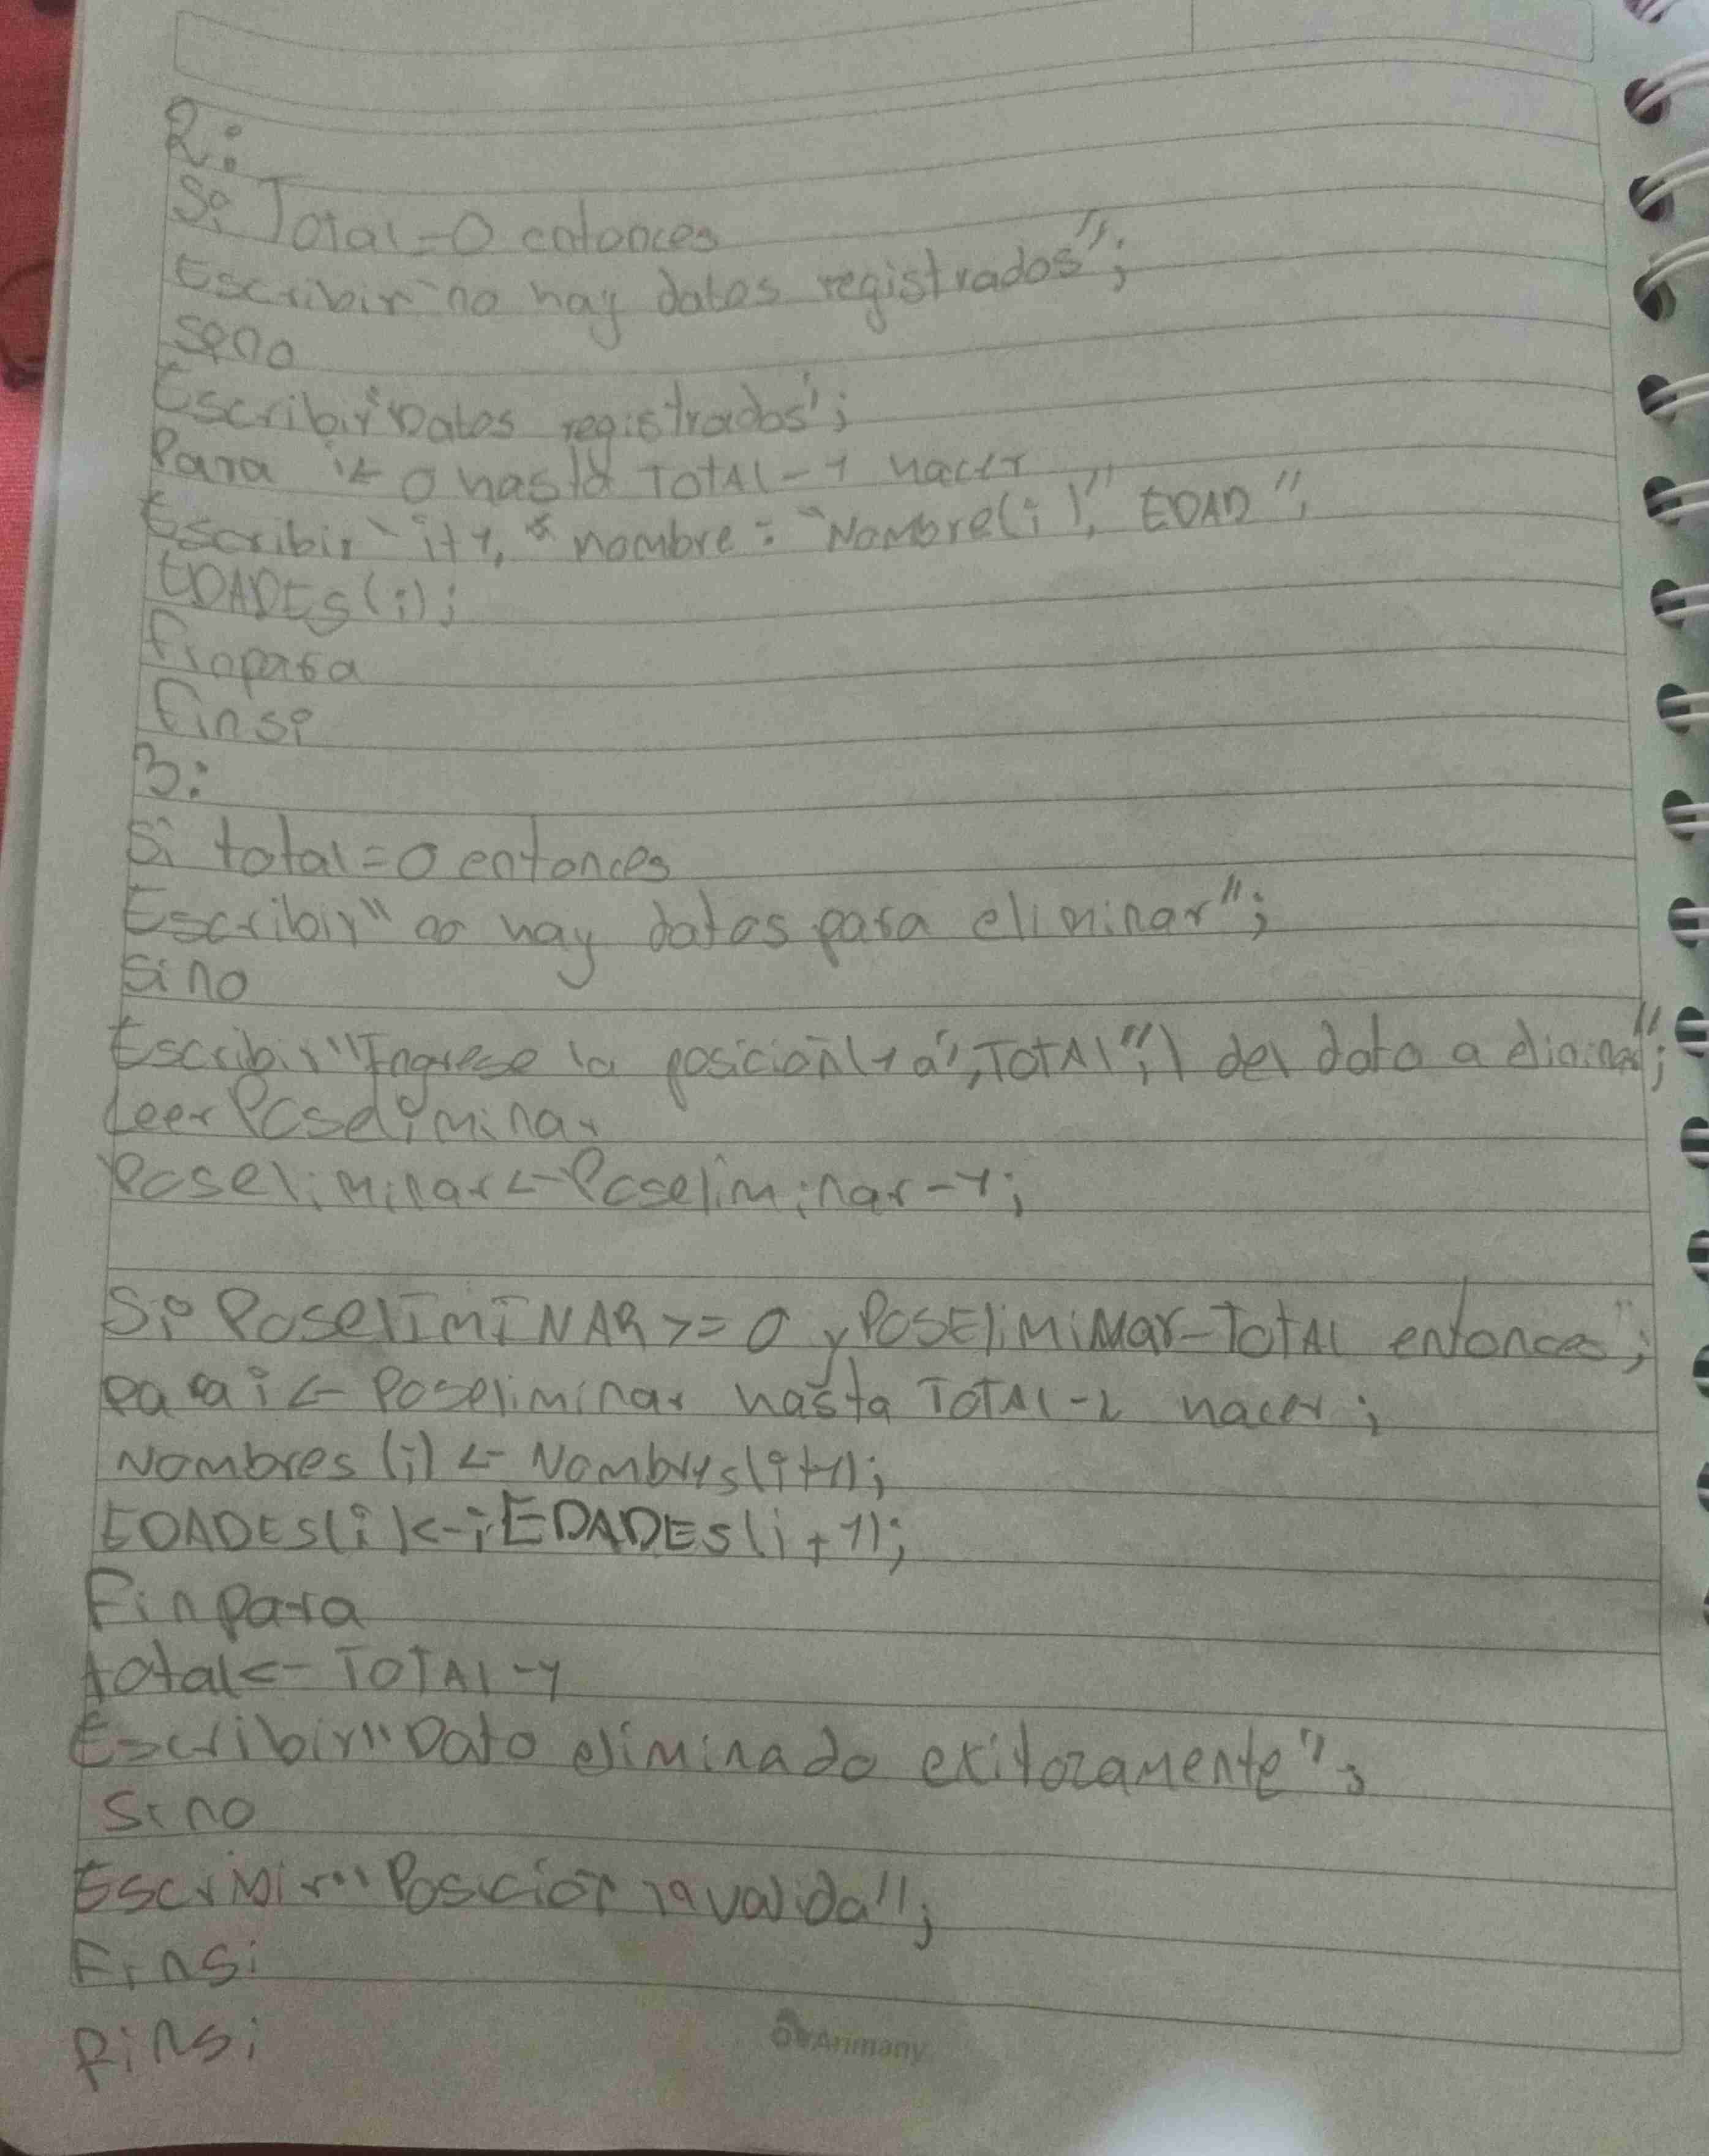 2:
Si Total=0 entonces
Escribir "no hay datos registrados";
sino
Escribir "Datos registrados";
Para i← 0 hasta TOTAl-1 hacer
Escribir "i+1, "nombre: "Nombre(i)," EDAD",
EDADEs(i);
finpara
finsi
3:
Si total=0 entonces
Escribir "no hay datos para eliminar";
sino
Escribir "Ingrese la posición(1 a", TOTAl",) del dato a eliminar";
Leer Poseliminar
Poseliminar<-Poseliminar-1;
Si PoselIMINAR >= 0 y POSEliMiNar-TotAl entonces;
para i <- Poseliminar hasta TOTAl-2 hacer;
Nombres (i) <- Nombres(i+1);
EDADEs(i)<-;EDADEs(i+1);
Finpara
total<- TOTAl-1
Escribir "Dato eliminado exitozamente";
Sino
Escribir "Posición invalida";
Finsi
finsi
Arimany